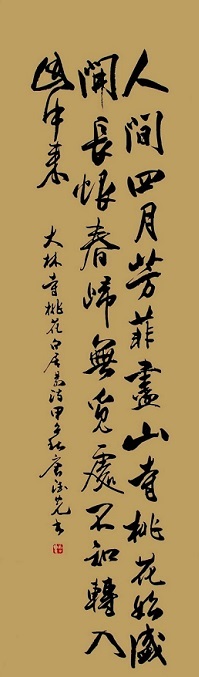 人間四月芳菲盡山寺桃花始盛
開長恨春歸無覓處不知轉入
此中來
大林寺桃花白居易詩甲午秋